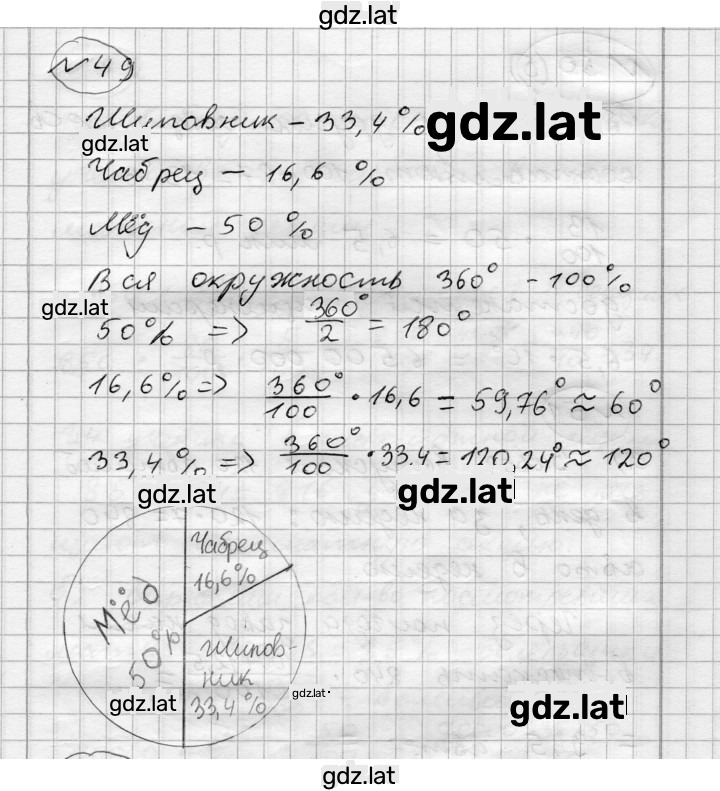 gdz.lat
№49
Шиповник – 33,4%
gdz.lat
gdz.lat
Чабрец – 16,6 %
Мёд – 50 %
Вся окружность 360° - 100%
gdz.lat
50% => 360°/2 = 180°
16,6% => 360°/100 · 16,6 = 59,76° ≈ 60°
33,4% => 360°/100 · 33.4 = 120,24° ≈ 120°
gdz.lat
gdz.lat
Чабрец
16,6%
Мёд
50%
Шипов-
ник
33,4%
gdz.lat
gdz.lat
gdz.lat
gdz.lat